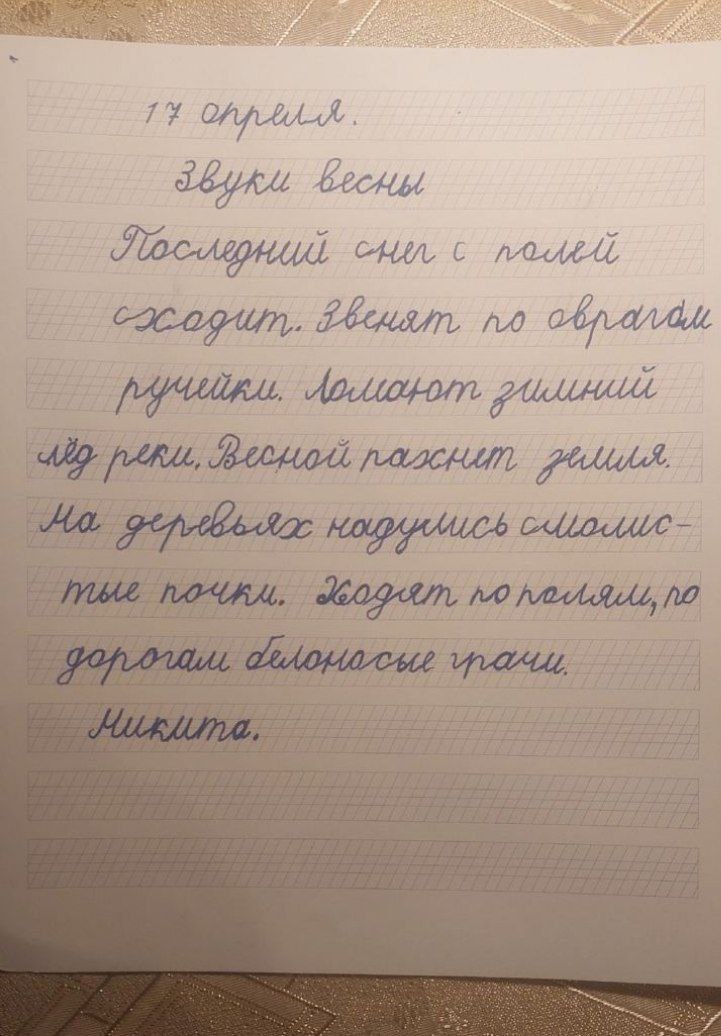 17 апреля.
Звуки весны
Последний снег с полей
сходит. Звенят по оврагам
ручейки. Ломают зимний
лёд реки. Весной пахнет земля.
На деревьях надулись смолис-
тые почки. Ходят по полям, по
дорогам белоносые грачи.
Никита.